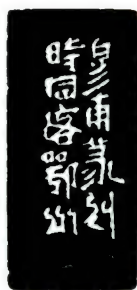 甫篆刻
時同客鄂州